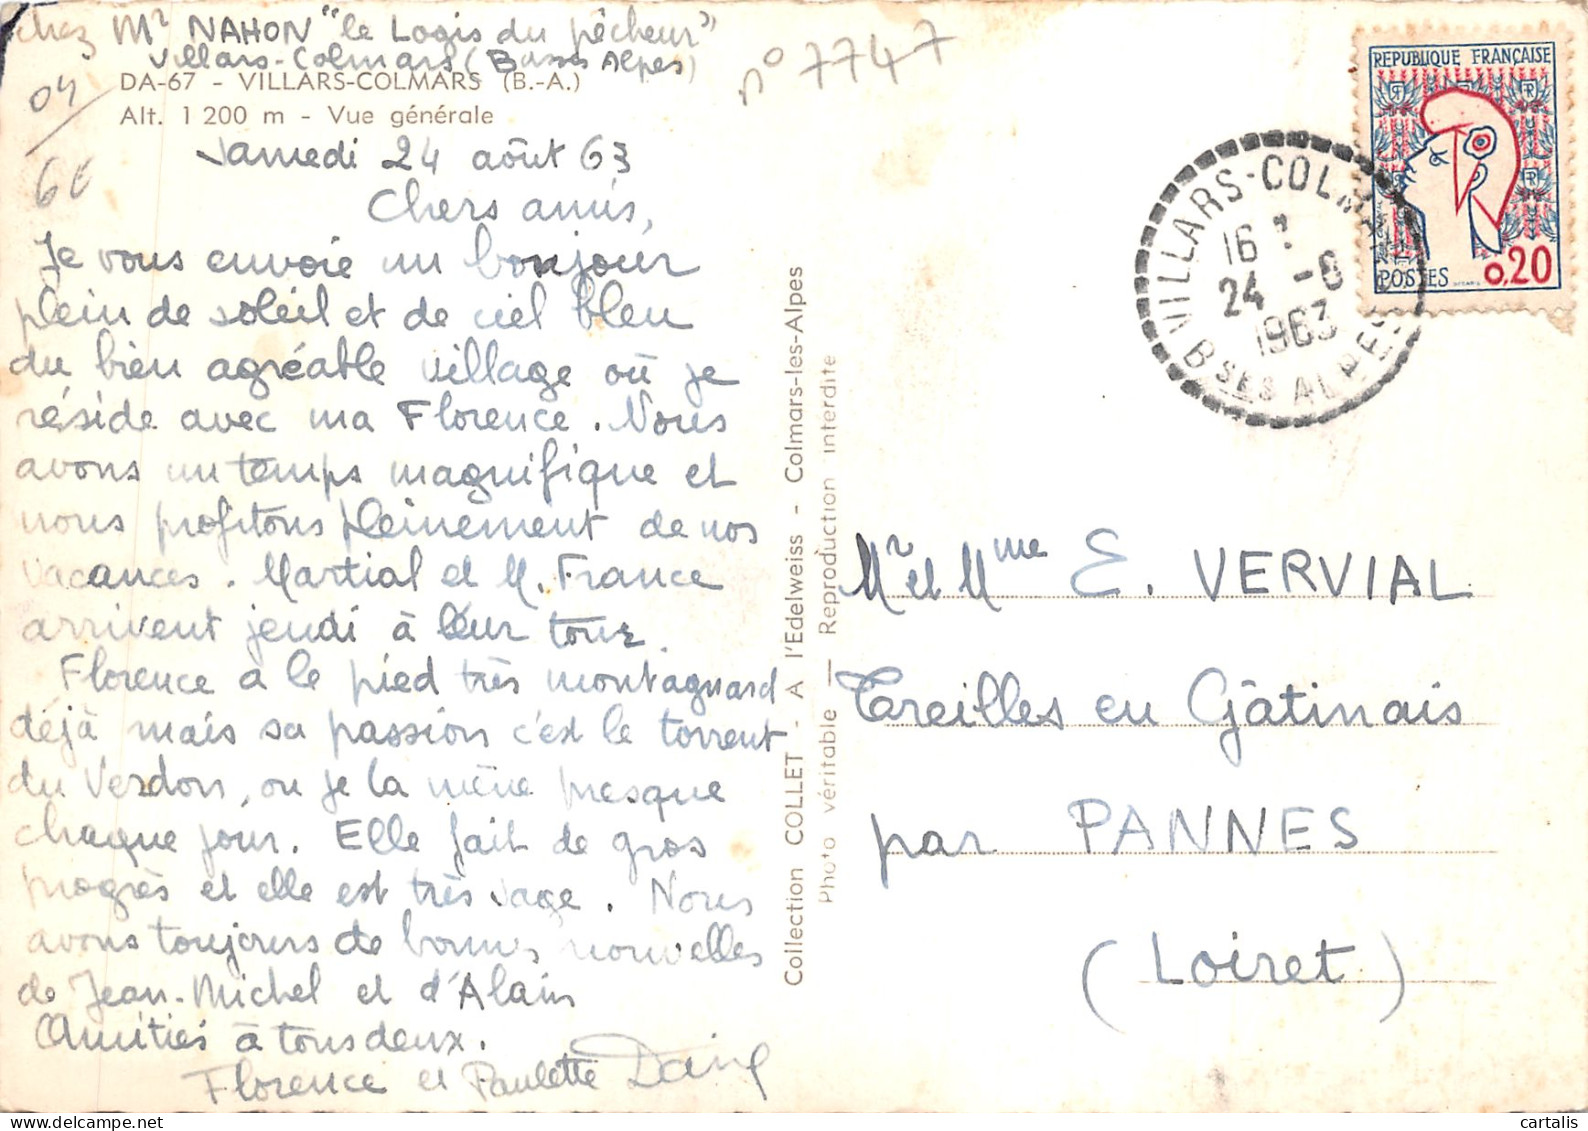 chez Mr NAHON "le Logis du pêcheur"
Villars-Colmars (Basses Alpes)
n° 7747
04
60
DA-67 - VILLARS-COLMARS (B.-A.)
Alt. 1 200 m - Vue générale
Samedi 24 août 63
Chers amis,
Je vous envoie un bonjour
plein de soleil et de ciel bleu
du bien agréable village où je
réside avec ma Florence. Nous
avons un temps magnifique et
nous profitons pleinement de nos
vacances. Martial et M. France
arrivent jeudi à leur tour.
Florence a le pied très montagnard
déjà mais sa passion c'est le torrent
du Verdon, ou je la mène presque
chaque jour. Elle fait de gros
progrès et elle est très sage. Nous
avons toujours de bonnes nouvelles
de Jean-Michel et d'Alain
Amitiés à tous deux.
Florence et Paulette
Collection COLLET - A l'Edelweiss - Colmars-les-Alpes
Photo véritable — Reproduction interdite
REPUBLIQUE FRANÇAISE
POSTES
0,20
VILLARS-COLMARS
16 H
24 -8
1963
Bses ALPES
Mr et Mme E. VERVIAL
Treilles en Gâtinais
par PANNES
(Loiret)
cartalis